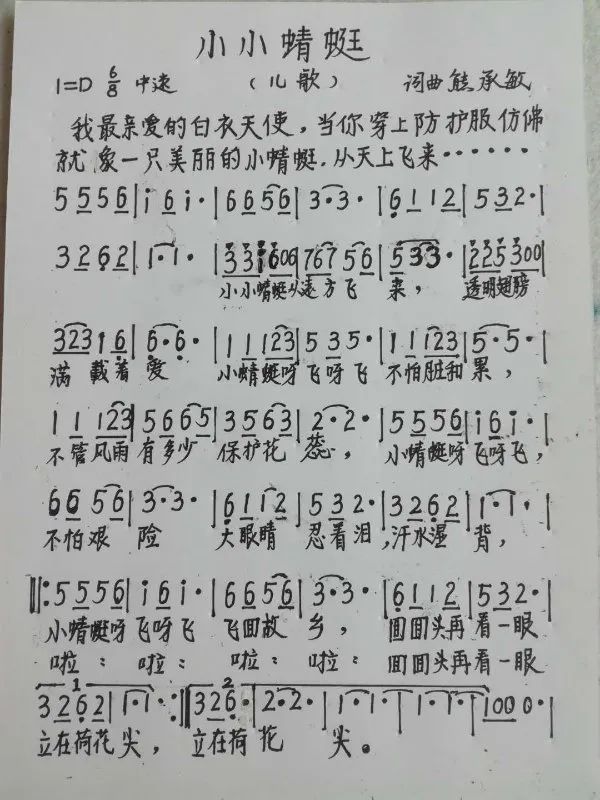 小小蜻蜓
1=D 6/8 中速 （儿歌） 词曲熊承敏
我最亲爱的白衣天使，当你穿上防护服仿佛
就象一只美丽的小蜻蜓．从天上飞来……
5 5 5 6 | i 6 i · | 6 6 5 6 | 3 · 3 · | 6 1 1 2 | 5 3 2 · |
3 2 6 2 | 1 · 1 · | 3 3 i 6 0 6 | 7 6 7 5 6 | 5 3 3 · | 2 2 5 3 0 0 |
小小蜻蜓从远方飞 来， 透明翅膀
3 2 3 1 6 | 6 · 6 · | 1 1 1 2 3 | 5 3 5 · | 1 1 1 2 3 | 5 · 5 · |
满 载着 爱 小蜻蜓呀飞呀飞 不怕脏和累，
1 1 1 2 3 | 5 6 6 5 | 3 5 6 3 | 2 · 2 · | 5 5 5 6 | i 6 i · |
不管风雨有多少 保护花 蕊， 小蜻蜓呀飞呀飞，
6 6 5 6 | 3 · 3 · | 6 1 1 2 | 5 3 2 · | 3 2 6 2 | 1 · 1 · |
不怕艰 险 大眼睛 忍着泪，汗水湿 背，
‖: 5 5 5 6 | i 6 i · | 6 6 5 6 | 3 · 3 · | 6 1 1 2 | 5 3 2 · |
小蜻蜓呀飞呀飞 飞回故 乡， 回回头再看一眼
啦： 啦： 啦： 啦： 回回头再看一眼
1 2
3 2 6 2 | 1 · 1 · :‖ 3 2 6 · | 2 · 2 · | 1 · 1 · | 1 · 1 · | 1 0 0 0 · 0 · ‖
立在荷花尖， 立在荷 花 尖。